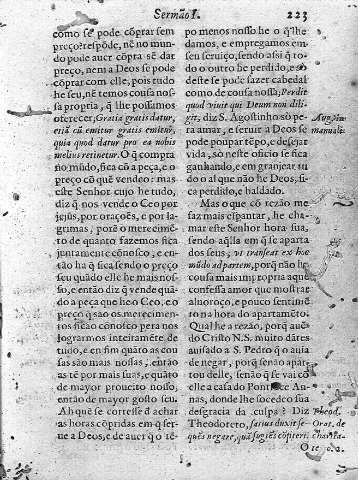 Sermão I. 223
como se pode cõprar sem
preço? respõde, nẽ no mun-
do pode auer cõpra sẽ dar
preço, nem a Deos se pode
cõprar com elle, pois tudo
he seu, nẽ temos cousa nos-
sa propria, q̃ lhe possamos
oferecer, Gratia gratis datur,
etiã cũ emitur gratis emitur,
quia quod datur pro ea nobis
melius retinetur. O q̃ compra
no mũdo, fica cõ a peça, e o
preço cõ quẽ vendeo: mas
este Senhor cujo he tudo,
diz q̃ nos vende o Ceo por
jejũs, por oraçoẽs, e por la-
grimas, porq̃ o merecimẽ-
to de quanto fazemos fica
juntamente cõnosco, e en-
tão ha q̃ fica sendo o preço
seu quãdo elle he mais nos-
so, e então diz q̃ vende quã-
do a peça que he o Ceo, e o
preço q̃ são os merecimen-
tos ficão cõnosco pera nos
lograrmos inteiramẽte de
tudo, e em fim quãto as cou-
sas são mais nossas, então
as tẽ por mais suas, e quãto
de mayor proueito nosso,
então de mayor gosto seu.
Ah que se corresse à achar
as horas cõpridas em q̃ ser-
ue a Deos, e de auer q̃ tẽ-
po menos nosso he o q̃ lhe
damos, e empregamos em
seu seruiço, sendo assi q̃ to-
do o outro he perdido, e só
deste se pode fazer cabedal
como de cousa nossa; Perdit
quod viuit qui Deum non dili-
git, diz S. Agostinho só pe-
ra amar, e seruir a Deos se
pode poupar tẽpo, e desejar
vida, só neste oficio se fica
ganhando, e em granjear tu
do o al que não he Deos, fi-
ca perdido, e baldado.
Mas o que cõ rezão me
faz mais espantar, he cha-
mar este Senhor hora sua,
sendo aq̃lla em q̃ se aparta
dos seus, vt transeat ex hoc
mũdo ad patrem, porq̃ não he
cousa mais impropria aque
confessa amor que mostrar
aluoroço, e pouco sentimẽ
to na hora do apartamẽto.
Qual he a rezão, porq̃ auẽ-
do Cristo N. S. muito dãtes
auisado a S. Pedro q̃ o auia
de negar, porq̃ senão apar-
tou delle, senão q̃ se vai cõ
elle a casa do Pontifice An-
nas, donde lhe socedeo sua
desgracia da culpa? Diz
Theodoreto, satius duxit se-
quẽs negare, quã fugiẽs cõfiteri.
O te
Augusti.
manuali.
Theod.
Orat. de
charita-